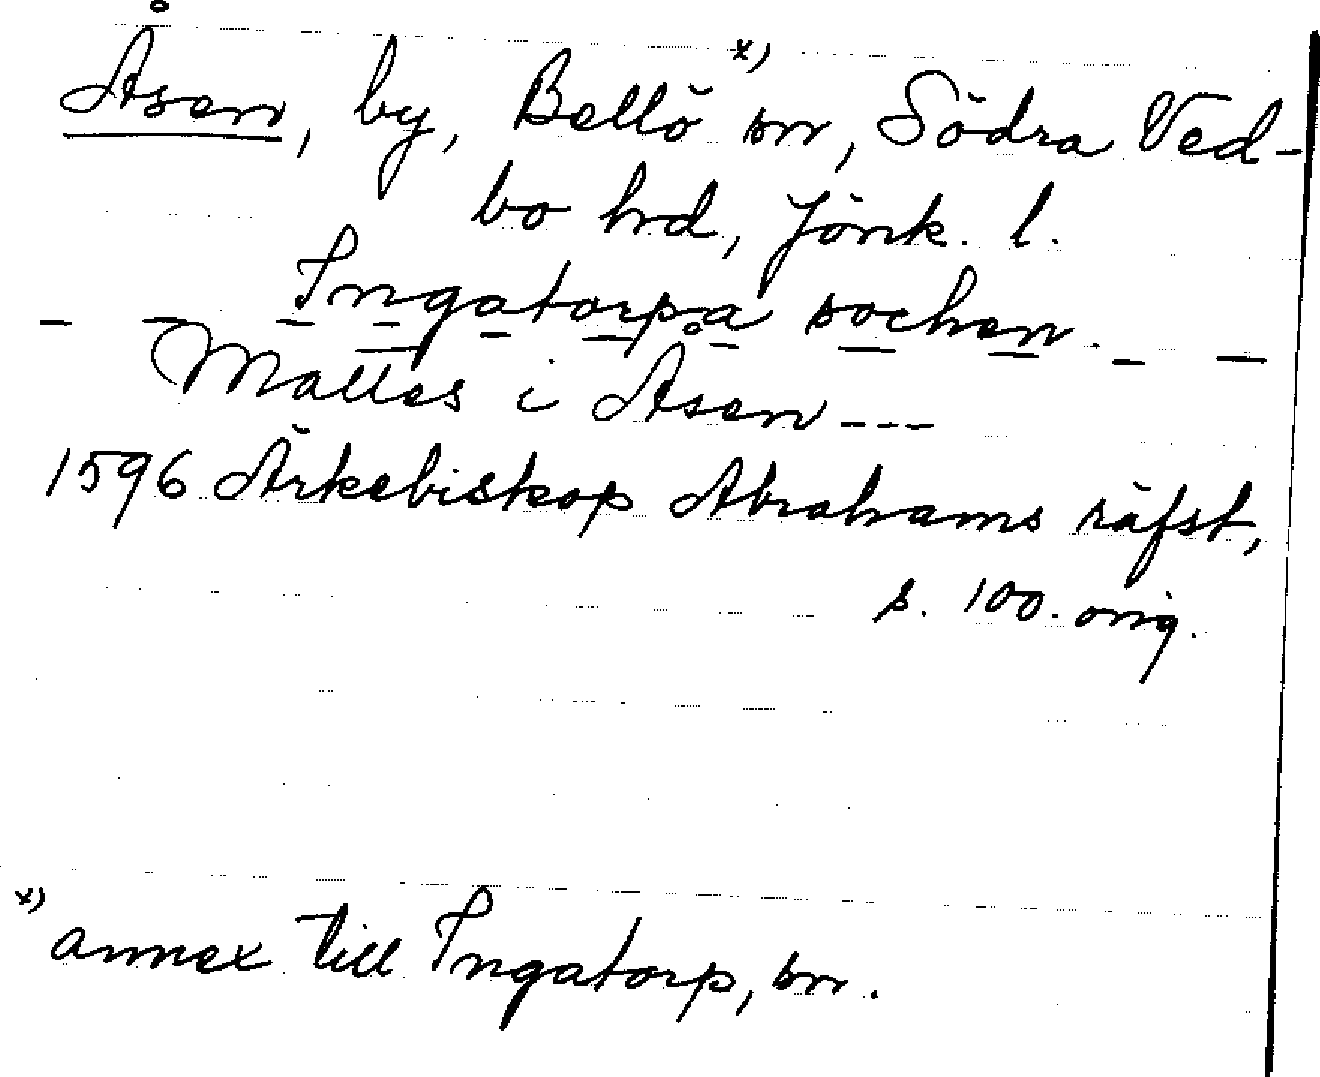 Åsen, by, Bellö x) sn, Södra Ved-
bo hrd, Jönk. l.
Ingatorpa sochen.
Mattes i Åsen ---
1596 Ärkebiskop Abrahams räfst,
s. 100. orig.
x) annex till Ingatorp, sn.